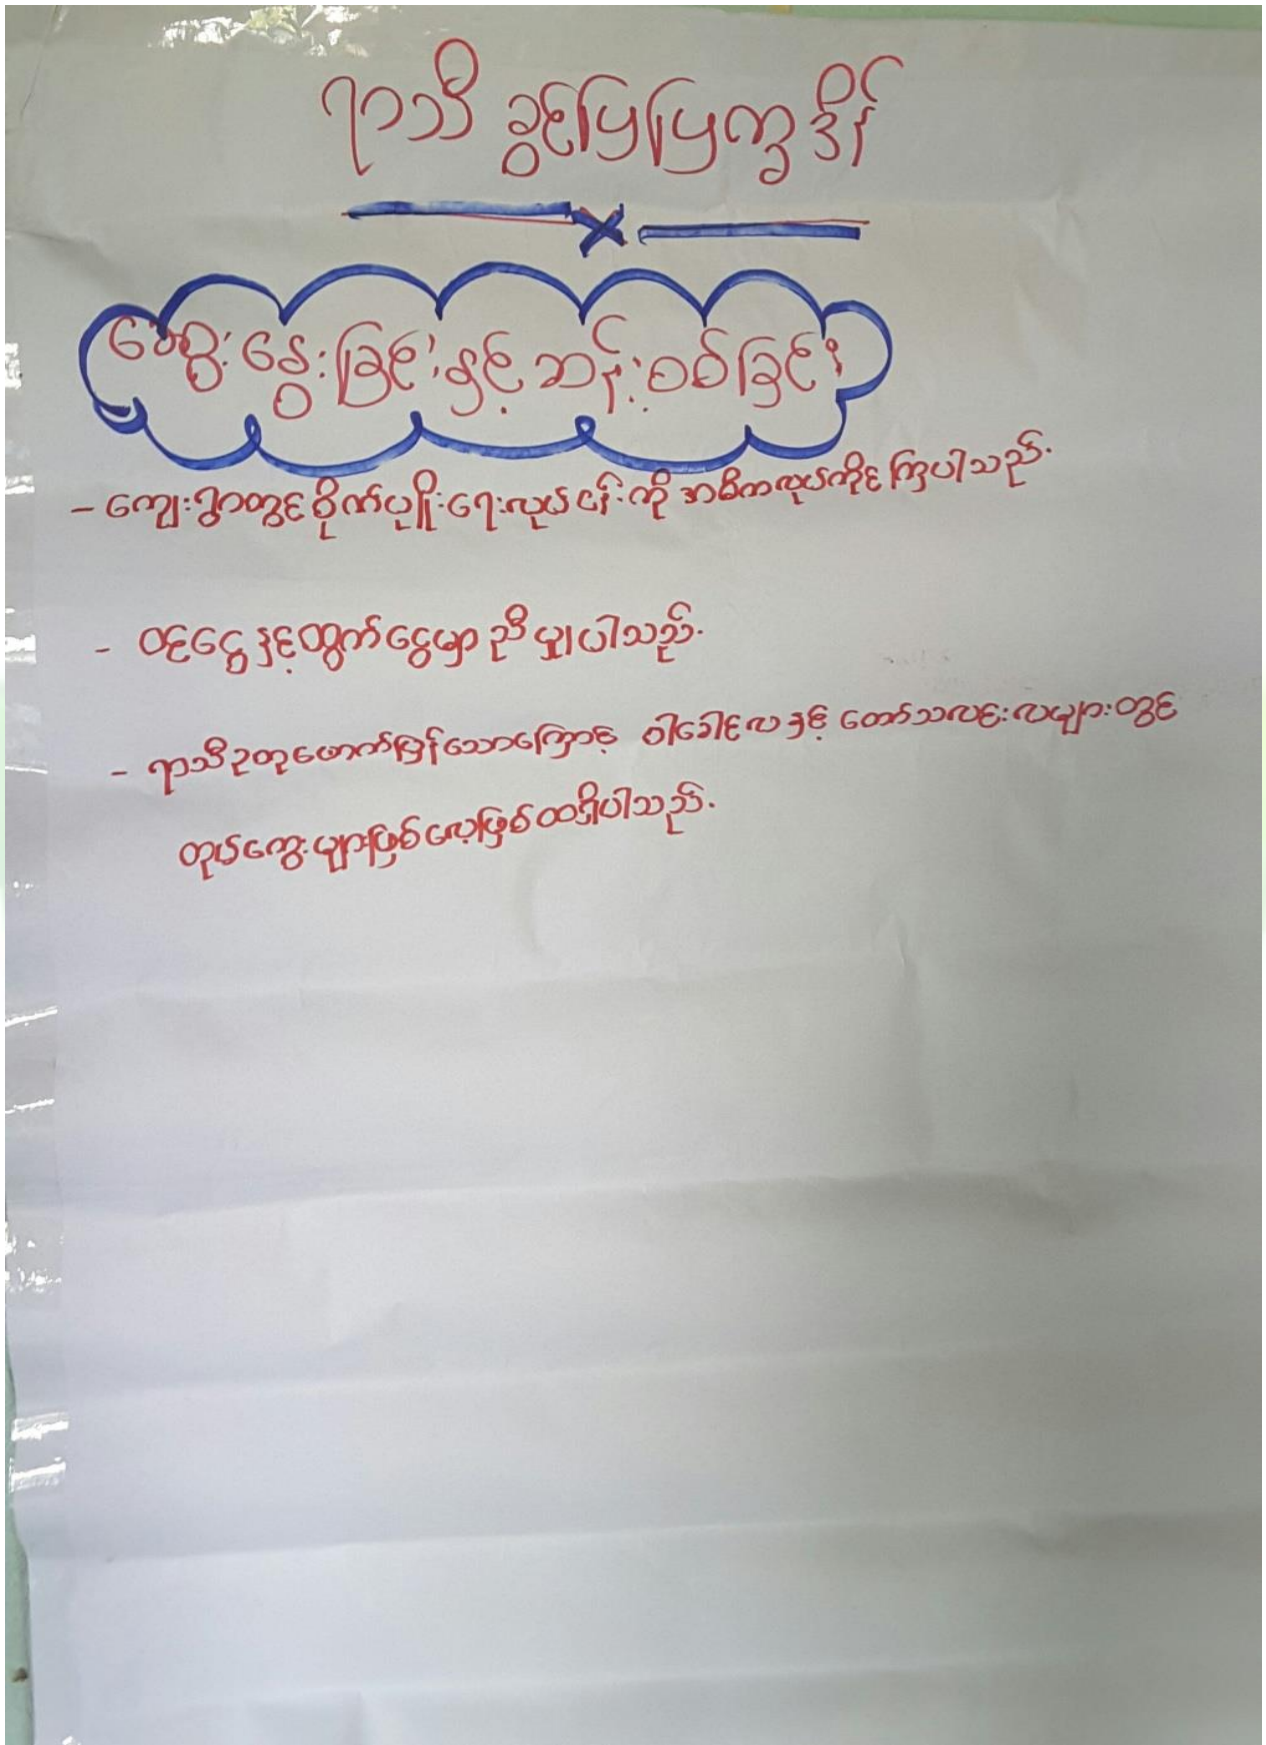 ရာသီခွင်ပြပြက္ခဒိန်
ဆွေးနွေးခြင်းနှင့်ဆန်းစစ်ခြင်း
- ကျေးရွာတွင်စိုက်ပျိုးရေးလုပ်ငန်းကို အဓိကလုပ်ကိုင်ကြပါသည်.
- ဝင်ငွေနှင့်ထွက်ငွေမှာညီမျှပါသည်.
- ရာသီဥတုဖောက်ပြန်သောကြောင့် ဝါခေါင်လနှင့် တော်သလင်းလများတွင်
တုပ်ကွေးများဖြစ်လေ့ဖြစ်ထရှိပါသည်.